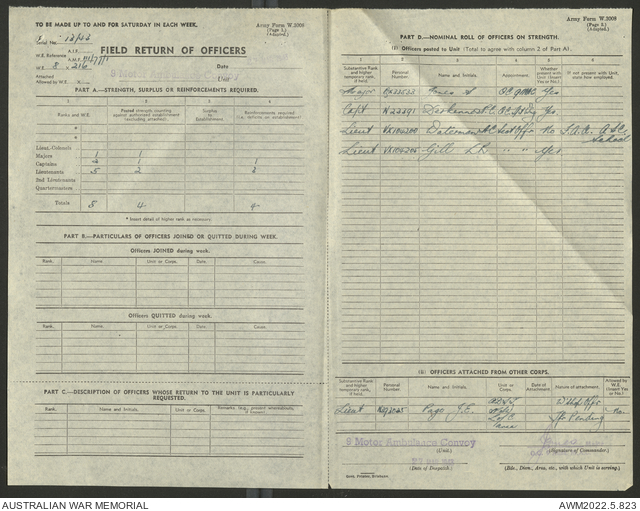 TO BE MADE UP TO AND FOR SATURDAY IN EACH WEEK.
Army Form W.3008
(Page 1.)
(Adapted.)
Serial No.
A.I.F.
W.E. Reference
A.M.F.
FIELD RETURN OF OFFICERS
W.E. 8 x 216
Date
Attached
Allowed by W.E.
9 Motor Ambulance Convoy
Unit
PART A.—STRENGTH, SURPLUS OR REINFORCEMENTS REQUIRED.
1 2 3 4
Ranks and W.E.
Posted strength counting against authorized establishment (excluding attached).
Surplus to Establishment.
Reinforcements required—(i.e. deficits on establishment)*
Lieut.-Colonels
Majors 1 1
Captains 2 1 1
Lieutenants 5 2 3
2nd Lieutenants
Quartermasters
Totals 8 4 4
* Insert detail of higher rank as necessary.
PART B.—PARTICULARS OF OFFICERS JOINED OR QUITTED DURING WEEK.
Officers JOINED during week.
Rank. Name. Unit or Corps. Date. Cause.
Officers QUITTED during week.
Rank. Name. Unit or Corps. Date. Cause.
PART C.—DESCRIPTION OF OFFICERS WHOSE RETURN TO THE UNIT IS PARTICULARLY REQUESTED.
Rank. Name and Initials. Unit or Corps. Remarks (e.g., present whereabouts, if known).
Army Form W.3008
(Page 2.)
(Adapted.)
PART D.—NOMINAL ROLL OF OFFICERS ON STRENGTH.
(i) Officers posted to Unit (Total to agree with column 2 of Part A).
1 2 3 4 5 6
Substantive Rank and higher temporary rank, if held.
Personal Number.
Name and Initials.
Appointment.
Whether present with Unit (Insert Yes or No.)
If not present with Unit, state how employed.
Major Jones A Yes
Capt Yes
Lieut No School
Lieut Gill Yes
(ii) OFFICERS ATTACHED FROM OTHER CORPS.
Substantive Rank and higher temporary rank, if held.
Personal Number.
Name and Initials.
Unit or Corps.
Date of Attachment.
Nature of attachment.
Allowed by W.E. (Insert Yes or No.)
Lieut Page J.E. No.
Pending
9 Motor Ambulance Convoy
(Unit.)
(Signature of Commander.)
(Date of Despatch)
(Bde., Divn., Area, etc., with which Unit is serving.)
AUSTRALIAN WAR MEMORIAL
AWM2022.5.823